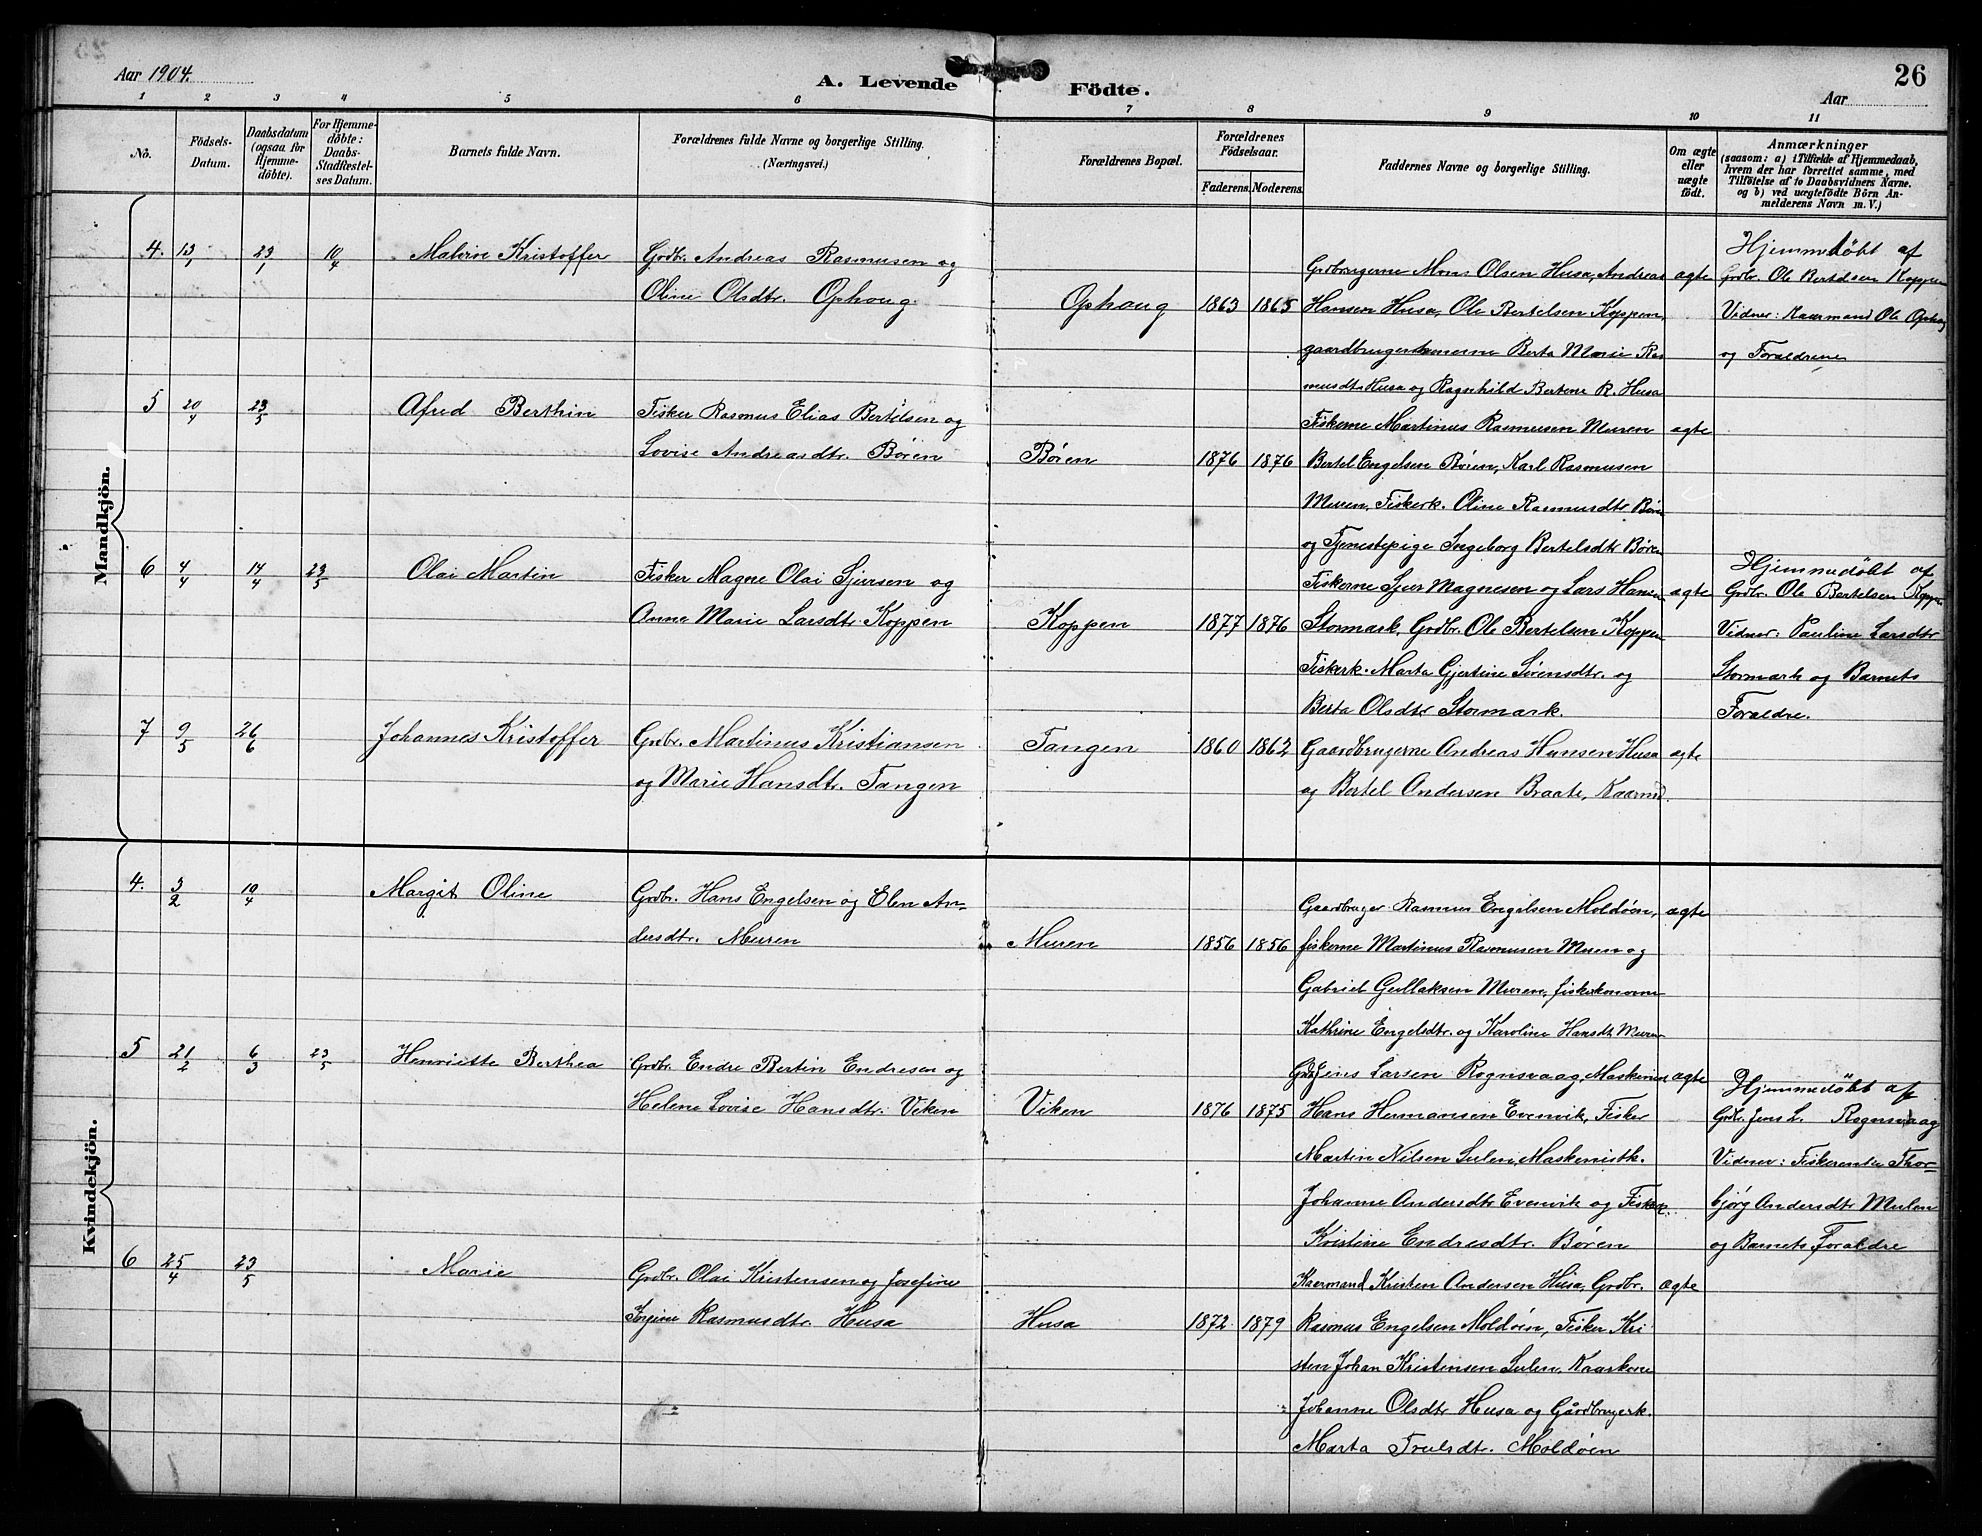 Aar 1904.
A. Levende Födte.
Aar
26
1 2 3 4 5 6 7 8 9 10 11
No.
Födsels-Datum.
Daabsdatum (ogsaa for Hjemme-döbte).
For Hjemme-döbte: Daabs-Stadfæstel-ses Datum.
Barnets fulde Navn.
Forældrenes fulde Navne og borgerlige Stilling. (Næringsvei.)
Forældrenes Bopæl.
Forældrenes Födselsaar.
Faderens. Moderens.
Faddernes Navne og borgerlige Stilling.
Om ægte eller uægte födt.
Anmærkninger (saasom: a) i Tilfælde af Hjemmedaab, hvem der har forrettet samme, med Tilföielse af to Daabsvidners Navne. og b) ved uægtefödte Börn An-melderens Navn m. V.)
Mandkjön.
4. 13/1 23/1 10/4 Malvin Kristoffer
Grdbr. Andreas Rasmusen og
Oline Olsdtr. Ophoug.
Ophoug 1863 1865
Grdbrugerne Mons Olsen Husa, Andreas
Hansen Husa, Ole Bertelsen Koppen,
gaardbrugerkonerne Berta Marie Ras
musdtr Husa og Ragnhild Bertene R. Husa
ægte
Hjemmedøbt af
Grdbr. Ole Bertelsen Koppen
Vidner: Kaarmand Ole Ophoug
og Forældrene
5 20/4 23/5 Afred Berthin
Fisker Rasmus Elias Bertelsen og
Lovise Andreasdtr. Børen
Børen 1876 1876
Fiskerne Martinus Rasmusen Muren
Bertel Engelsen Børen, Karl Rasmusen
Muren, Fiskerk. Oline Rasmusdtr Børen
og Tjenestepige Ingeborg Bertelsdtr Børen
ægte
6 4/4 14/4 23/5 Olai Martin
Fisker Magne Olai Sjursen og
Anna Marie Larsdtr. Koppen
Koppen 1877 1876
Fiskerne Sjur Magnesen og Lars Hansen
Stormark, Grdbr. Ole Bertelsen Koppen
Fiskerk. Marta Gjertine Sørensdtr. og
Berta Olsdtr Stormark.
ægte
Hjemmedøbt af
Grdbr. Ole Bertelsen Koppen
Vidner: Pauline Larsdtr
Stormark og Barnets
Forældre.
7 9/5 26/6 Johannes Kristoffer
Grdbr. Martinus Kristiansen
og Marie Hansdtr. Tangen
Tangen 1860 1862
Gaardbrugerne Andreas Hansen Husa
og Bertel Andersen Braate, Kaarmd.
ægte
Kvindekjön.
4. 3/2 10/4 Margit Oline
Grdbr. Hans Engelsen og Elen An-
dersdtr. Muren
Muren 1856 1856
Gaardbruger Rasmus Engelsen Moldøen,
fiskerne Martinus Rasmusen Muren og
Gabriel Gullaksen Muren, fiskerkonerne
Kathrine Engelsdtr. og Karoline Hansdtr Muren
ægte
5 21/2 6/3 23/5 Henriette Berthea
Grdbr. Endre Bertin Endresen og
Helene Lovise Hansdtr. Viken
Viken 1876 1875
Grdbr Jens Larsen Rognsvaag, Maskinist
Hans Hermansen Evenvik, Fisker
Martin Nilsen Sulen, Maskenistk.
Johanne Andersdtr Evenvik og Fiskerk.
Kristine Endresdtr. Børen
ægte
Hjemmedøbt af
Grdbr. Jens L. Rognsvaag
Vidner: Fiskerenke Thor-
bjørg Andersdtr Sulen
og Barnets Forældre
6 25/4 23/5 Marie
Grdbr. Olai Kristensen og Josefine
Ingine Rasmusdtr. Husa
Husa 1872 1879
Kaarmand Kristen Andersen Husa, Grdbr.
Rasmus Engelsen Moldøen, Fisker Kri-
sten Johan Kristensen Sulen, Kaarkone
Johanne Olsdtr Husa og Gårdbrugerk.
Marta Trulsdtr. Moldøen
ægte